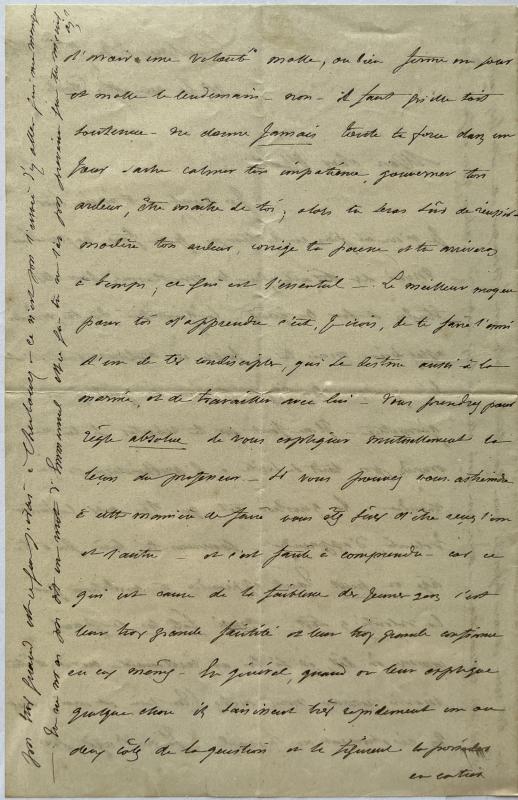 d'avoir une volonté molle, ou bien ferme un jour
et molle le lendemain - non - il faut qu'elle soit
soutenue - ne donne jamais toute ta force dans un
jour sache calmer ton impatience, gouverner ton
ardeur, être maître de toi, alors tu seras sûr de réussir
modère ton ardeur, corrige ta paresse et tu arriveras
à temps, ce qui est l'essentiel - Le meilleur moyen
pour toi d'apprendre c'est, je crois, de te faire l'ami
d'un de tes condisciples, qui se destine aussi à la
marine, et de travailler avec lui - Vous prendrez pour
règle absolue de vous expliquer mutuellement la
leçon du professeur - Si vous pouvez vous astreindre
à cette manière de faire vous êtes sûrs d'être reçus l'un
et l'autre - et c'est facile à comprendre - car ce
qui est cause de la faiblesse des jeunes gens c'est
leur trop grande facilité et leur trop grande confiance
en eux mêmes - En général, quand on leur explique
quelque chose ils saisissent très rapidement un ou
deux côtés de la question et se figurent la posséder
en entier
pas trop quand est ce que j'irai à Cherbourg - ce n'est pas l'envie d'y aller qui me manque
Tu ne m'as pas dit un mot d'Emmanuel